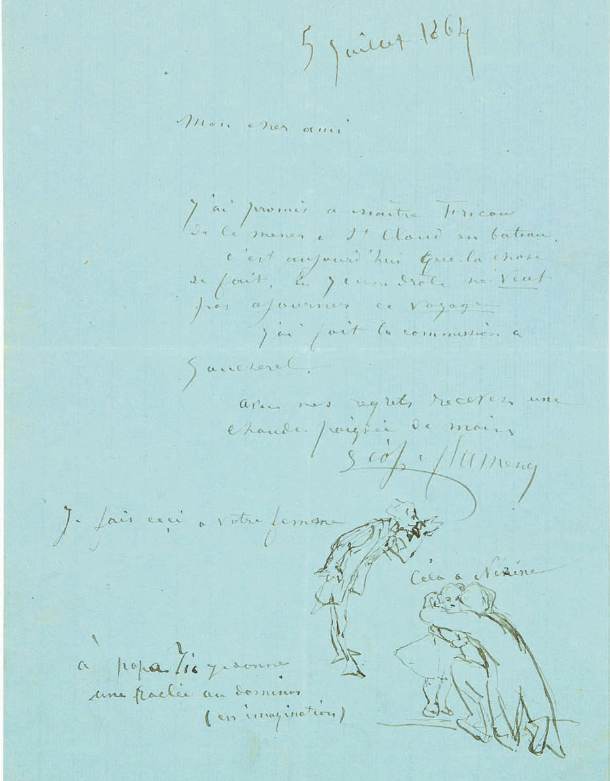 5 Juillet 1864
Mon cher ami
J'ai promis a maitre
de le mener a St Cloud en bateau.
c'est aujourd'hui que la chose
se fait, le jeune drôle ne veut
pas ajourner ce voyage
J'ai fait la commission a
Gaucherel.
avec mes regrets recevez une
chaude poignée de mains
Léop. Flameng
Je fais ceci a votre femme
Cela a Nizine
à papa je donne
une raclée au dominos
(en imagination)